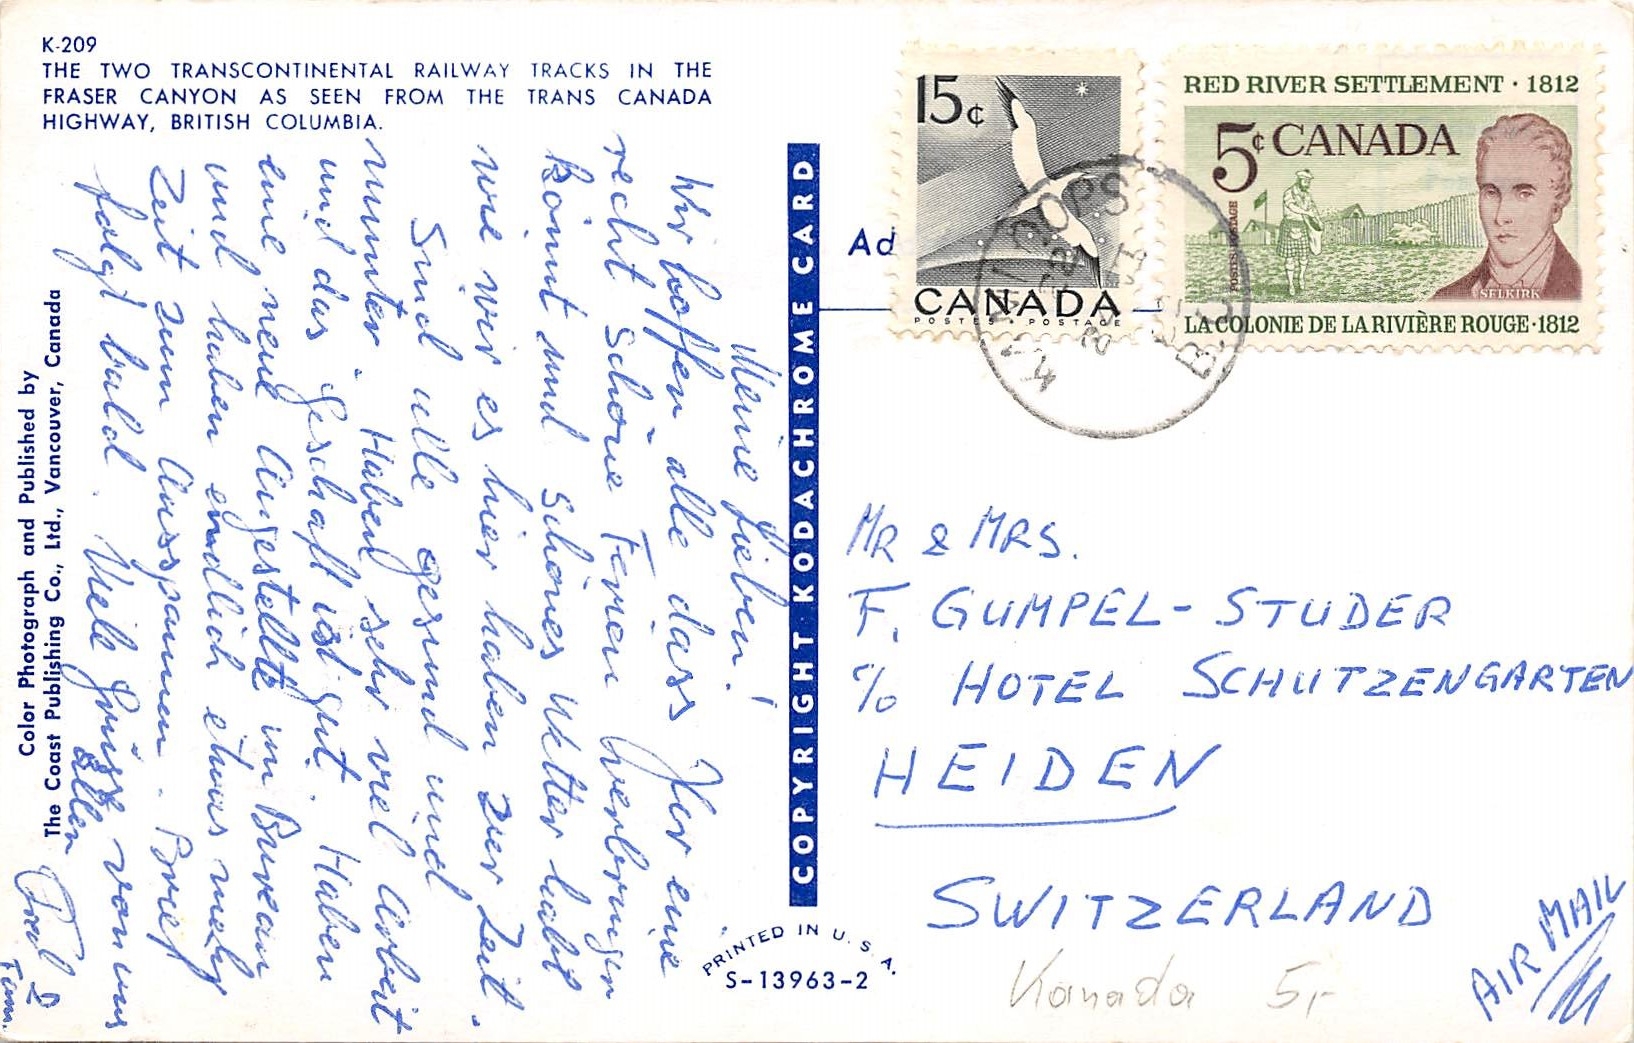 K-209
THE TWO TRANSCONTINENTAL RAILWAY TRACKS IN THE
FRASER CANYON AS SEEN FROM THE TRANS CANADA
HIGHWAY, BRITISH COLUMBIA.
Meine Lieben!
Wir hoffen alle dass Ihr eine
recht schöne Ferien verbringen
könnt und schönes Wetter habt
wie wir es hier haben zur Zeit.
Sind alle gesund und
munter. Haben sehr viel Arbeit
und das Geschäft ist gut. Haben
eine neue Angestellte im Bureau
und haben endlich etwas mehr
Zeit zum Ausspannen. Brief
folgt bald. Viele Grüsse von uns
allen Paul & Fam.
Color Photograph and Published by
The Coast Publishing Co., Ltd., Vancouver, Canada
COPYRIGHT KODACHROME CARD
PRINTED IN U.S.A.
S-13963-2
Ad
15¢
CANADA
POSTES · POSTAGE
RED RIVER SETTLEMENT · 1812
5¢ CANADA
POSTES POSTAGE
SELKIRK
LA COLONIE DE LA RIVIÈRE ROUGE · 1812
KAMLOOPS
B.C.
MR & MRS.
F. GUMPEL-STUDER
c/o HOTEL SCHUTZENGARTEN
HEIDEN
SWITZERLAND
AIR MAIL
Kanada 5,-